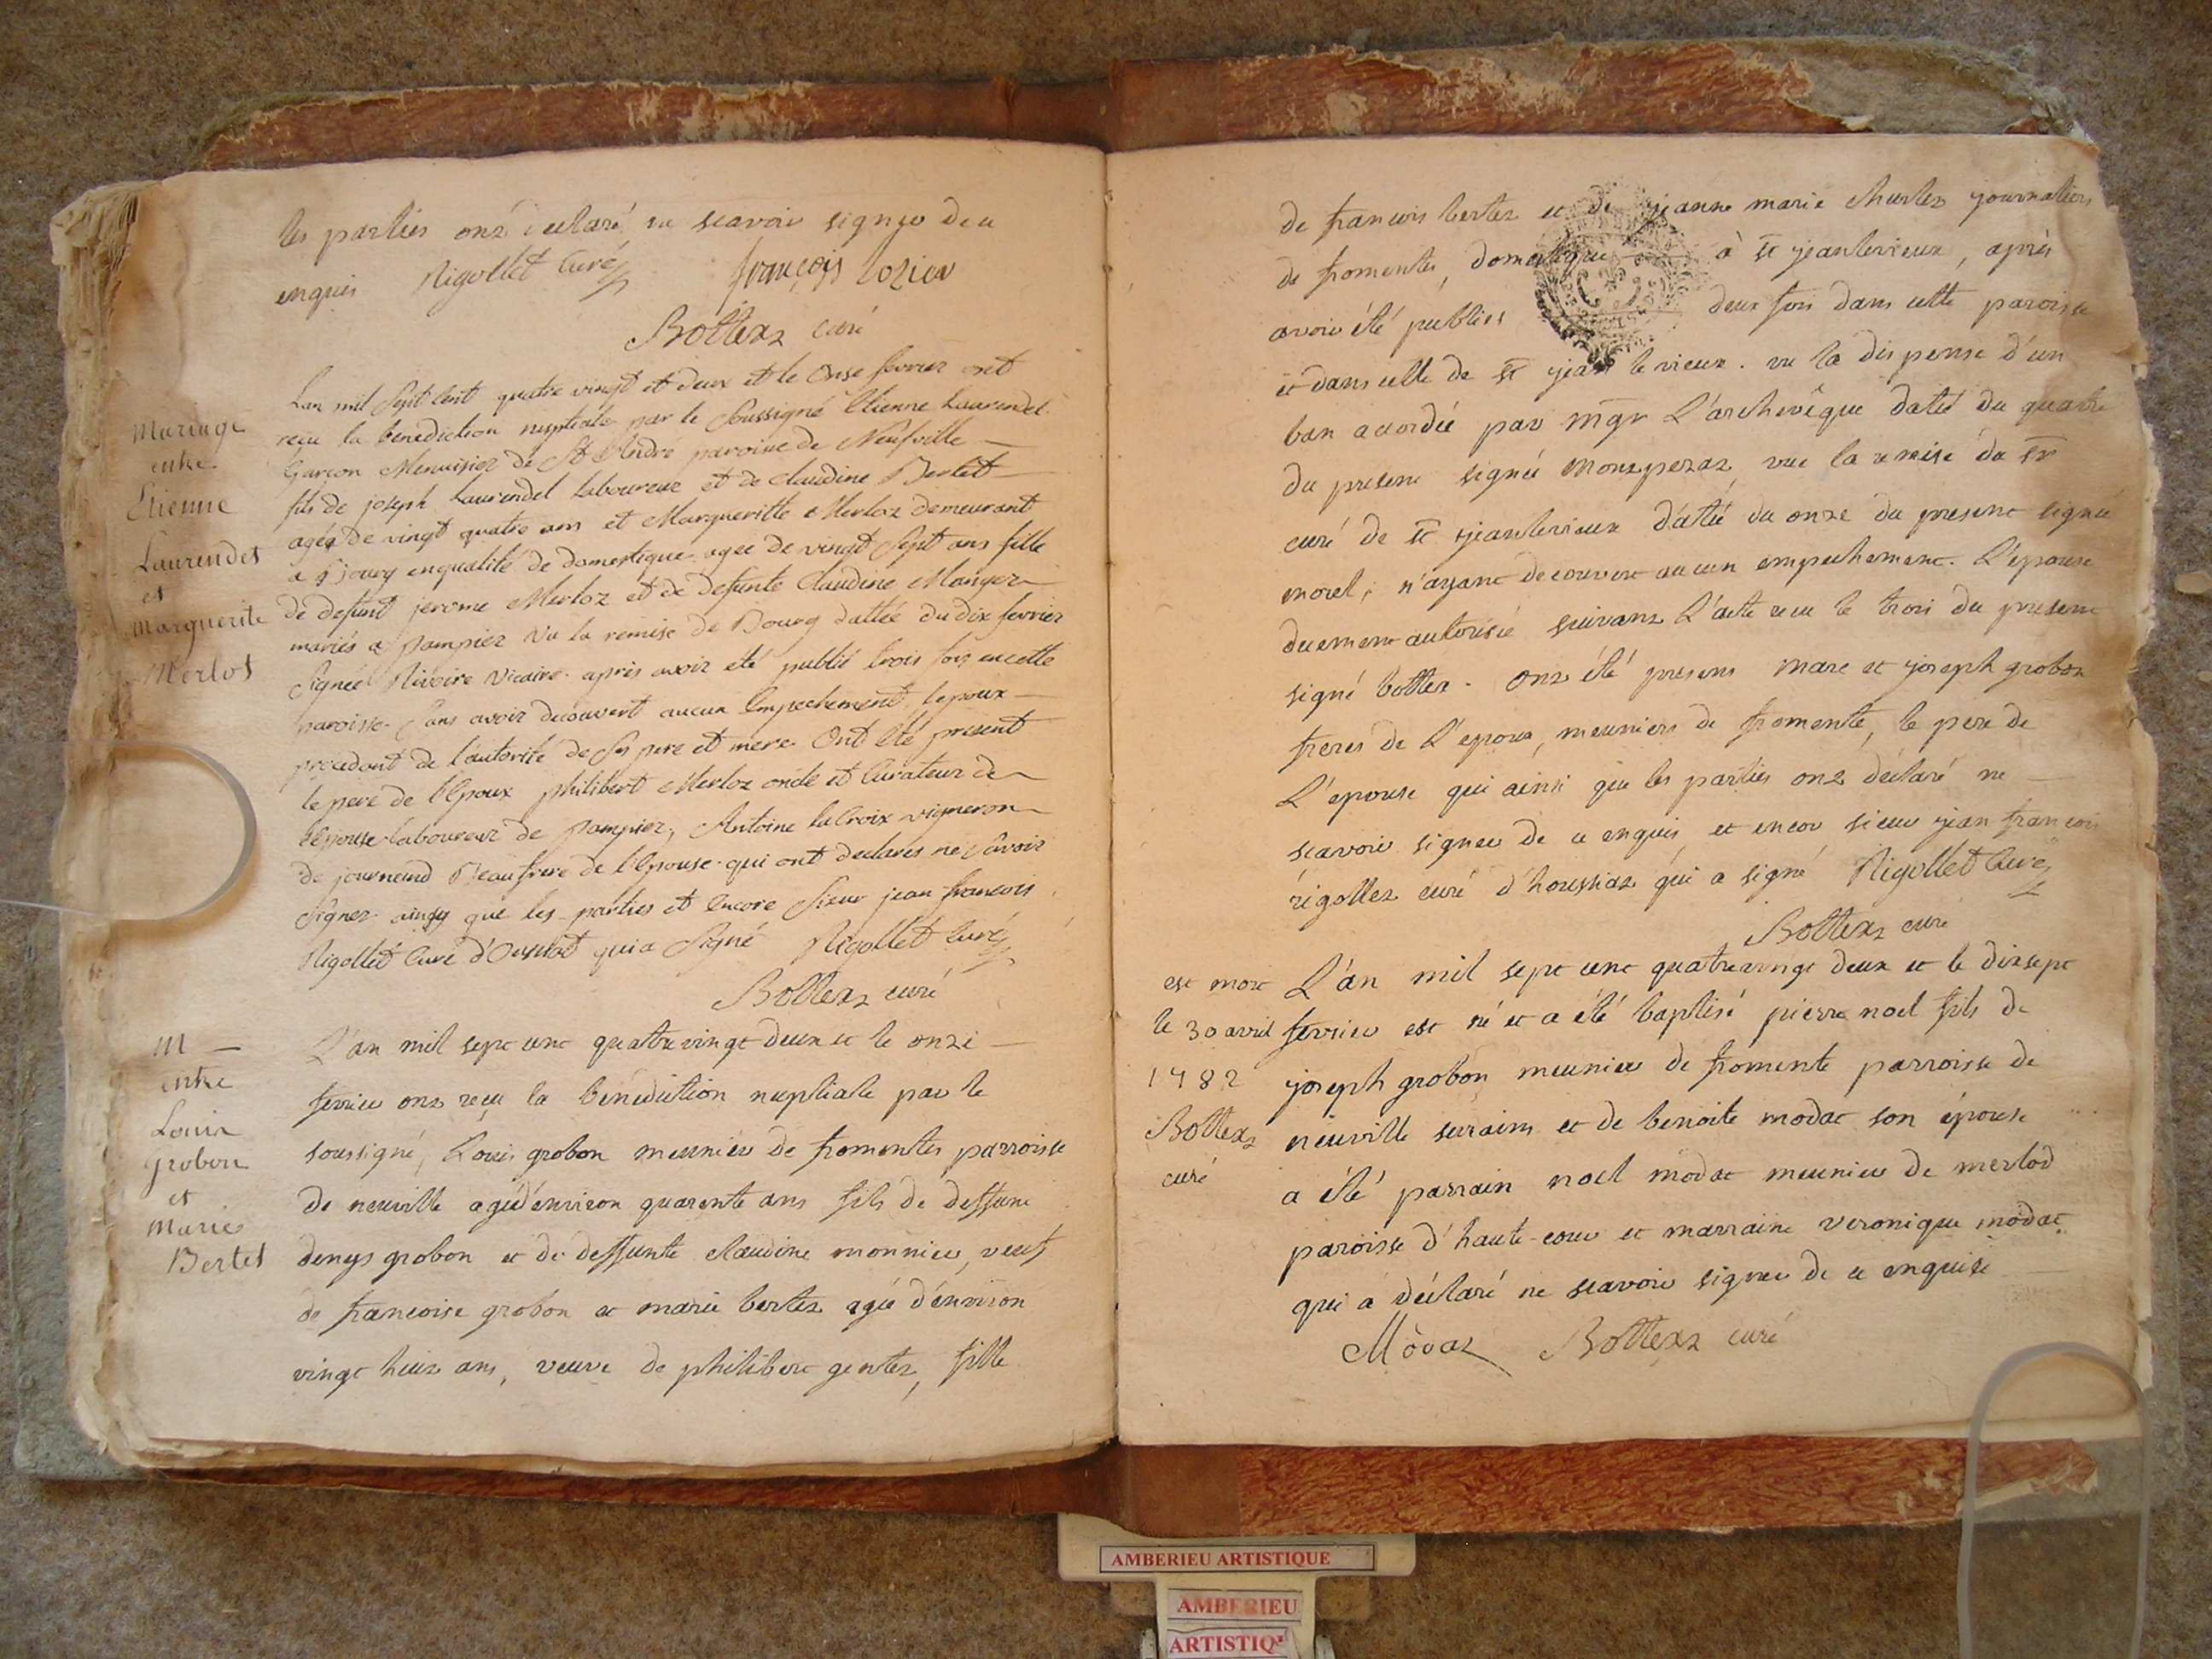 les parties ont declaré ne scavoir signer de ce
enquis Rigollet Curé françois lozier
Bottex curé
Mariage
entre
Etienne
Laurendet
et
Marguerite
Merlos
Lan mil Sept Cent quatre vingt et deux et le Onse fevrier ont
reçu la benediction nuptiale par le Soussigné Etienne Laurendet
Garçon Menuisier de St André paroisse de Neufville
fils de joseph Laurendet laboureur et de Claudine Berlet
agée de vingt quatre ans et Margueritte Merloz demeurant
a Bourg enqualité de domestique agee de vingt Sept ans fille
de defunt jerome Merloz et de defunte Claudine Manger
mariés a pampier Vu la remise de Bourg dattée du dix fevrier
Signée Riboire vicaire. après avoir eté publié trois fois en cette
paroisse. Sans avoir decouvert aucun Empechement, lepoux
procedant de l'autorité de Ses pere et mere. Ont Eté present
le pere de l'Epoux philibert Merloz oncle et Curateur de
l'Epouse laboureur de pampier, Antoine laCroix vigneron
de journeand Beaufrere de l'Epouse qui ont declarés ne Scavoir
Signer ainsy que les parties et Encore Sieur jean françois
Rigollet Curé d'Oussiat qui a Signé Rigollet Curé
Bottex curé
M
entre
Louis
grobon
et
Marie
Bertet
L'an mil sept cent quatrevingt deux et le onze
fevrier ont reçu la bénédiction nuptiale par le
soussigné, Louis grobon meunier de fromentes parroisse
de neuville agé d'environ quarente ans fils de deffunt
denys grobon et de deffunte claudine monnier, veuf
de francoise grobon et marie bertet agée d'environ
vingt huit ans, veuve de philibert gentet, fille
de francois bertet et de jeanne marie churlet journaliers
de fromentes, domestique à st jeanlevieux, après
avoir été publiés deux fois dans cette paroisse
et dans celle de st jean le vieux. vu la dispense d'un
ban accordée par mgr L'archevêque datée du quatre
du present signée Montperoz, vue la remise du sr
curé de st jeanlevieux datée du onze du present signée
morel, n'ayant decouvert aucun empechement. L'epouse
duement autorisée suivant L'acte reçu le trois du present
signé bottex. Ont été presens marc et joseph grobon
freres de L'epoux, meuniers de fromente, le pere de
L'epouse qui ainsi que les parties ont déclaré ne
scavoir signer de ce enquis, et encor sieur jean francois
rigollet curé d'houssiat qui a signé Rigollet Curé
Bottex curé
est mort
le 30 avril
1782
Bottex
curé
L'an mil sept cent quatrevingt deux et le dixsept
fevrier est né et a été baptisé pierre noel fils de
joseph grobon meunier de fromente parroisse de
neuville surains et de benoite modat son épouse
a été parrain noel modat meunier de merlod
paroisse d'haute-cour et marraine veronique modat
qui a déclaré ne scavoir signer de ce enquise
Modaz Bottex curé
AMBERIEU ARTISTIQUE
AMBERIEU
ARTISTIQ